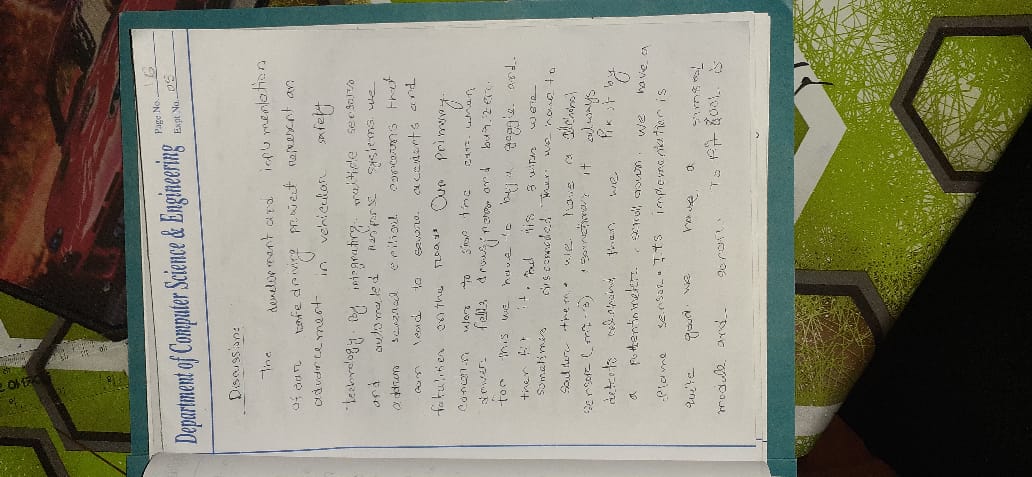 Department of Computer Science & Engineering
Page No. 16
Expt No. 05
Discussion:
The development and implementation
of our safe driving project represent an
advancement in vehicular safety
technology. By integrating multiple sensors
and automated response systems we
address several critical concerns that
can lead to severe accidents and
fatalities on the road. Our primary
concern was to stop the car when
driver feels drowsiness and buzzer.
for this we have to buy a goggle and
then fit it. But its wires were
sometimes disconnected, then we have to
solder them. We have a alchohol
sensor (mq-3), sometimes it always
detects alchohol then we fix it by
a potentiometer, scroll down. We have a
flame sensor. Its implementation is
quite good. We have a sim
module and To is